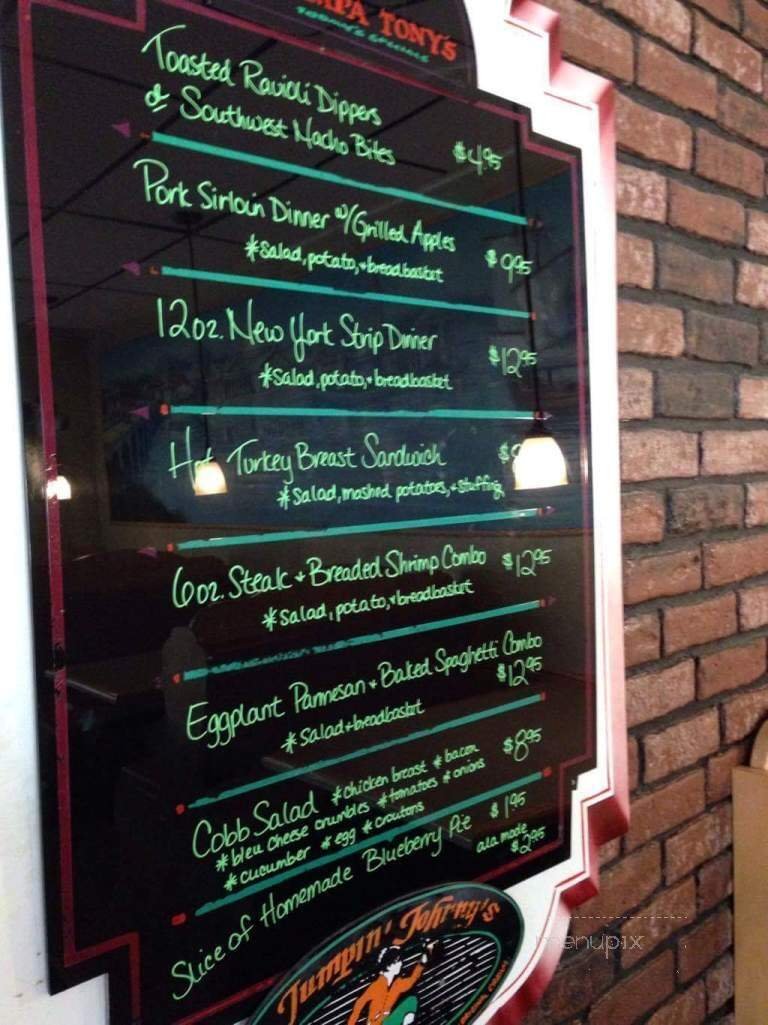 TONY'S
TODAY'S SPECIALS
Toasted Ravioli Dippers
or Southwest Nacho Bites $4.95
Pork Sirloin Dinner w/Grilled Apples
*Salad, potato, + breadbasket $9.95
12oz. New York Strip Dinner
*Salad, potato, + breadbasket $12.95
Hot Turkey Breast Sandwich
*Salad, mashed potatoes, + stuffing
6oz. Steak + Breaded Shrimp Combo $12.95
*Salad, potato, + breadbasket
Eggplant Parmesan + Baked Spaghetti Combo
*Salad + breadbasket $12.95
Cobb Salad *chicken breast *bacon $8.95
*bleu cheese crumbles *tomatoes *onions
*cucumber *egg *croutons
Slice of Homemade Blueberry Pie $1.95
ala mode $2.95
Jumpin' Johnny's
menupix